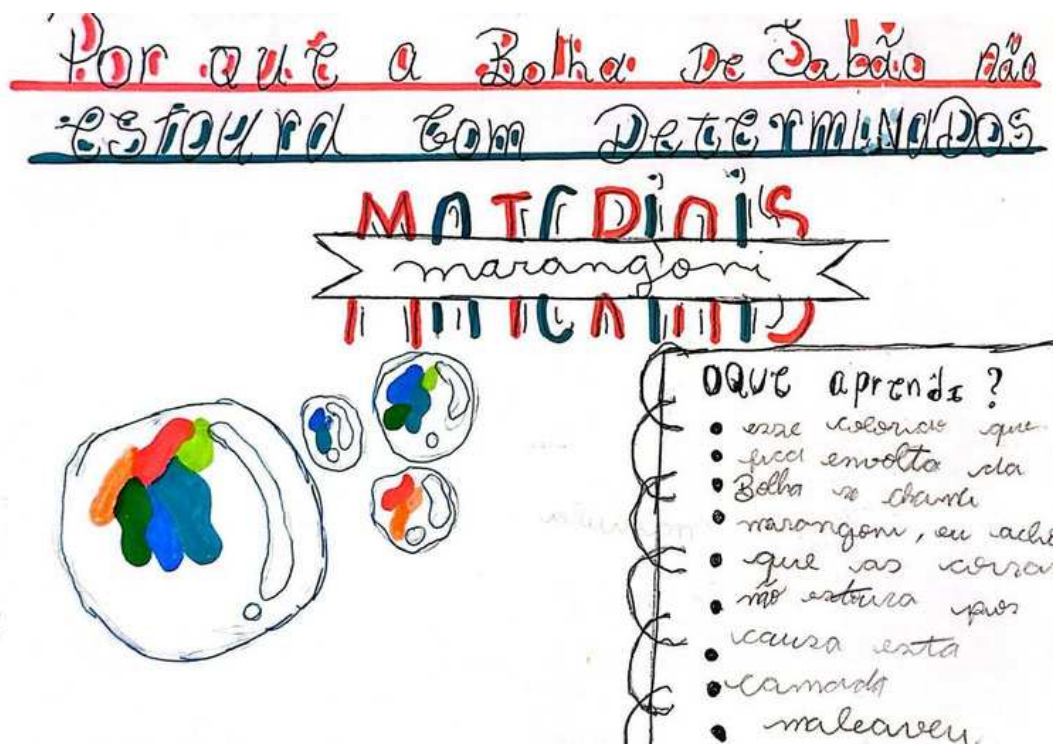 Por quê a Bolha De Sabão não
estoura com Determinados
Materiais
marangoni
Oque aprendi?
esse colorido que
fica envolta da
Bolha se chama
marangoni, eu ache
que as coisa
não estoura pos
causa esta
camada
maleaveu.